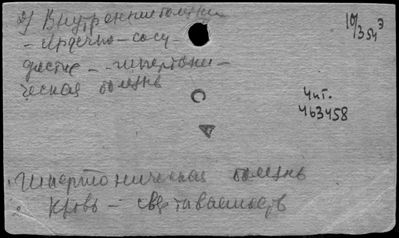 2) Внутренние болезни
10/354³
- сердечно-сосу-
дистые - гипертони-
ческая болезнь
Чит.
463458
Гипертоническая болезнь
Кровь - свертываемость